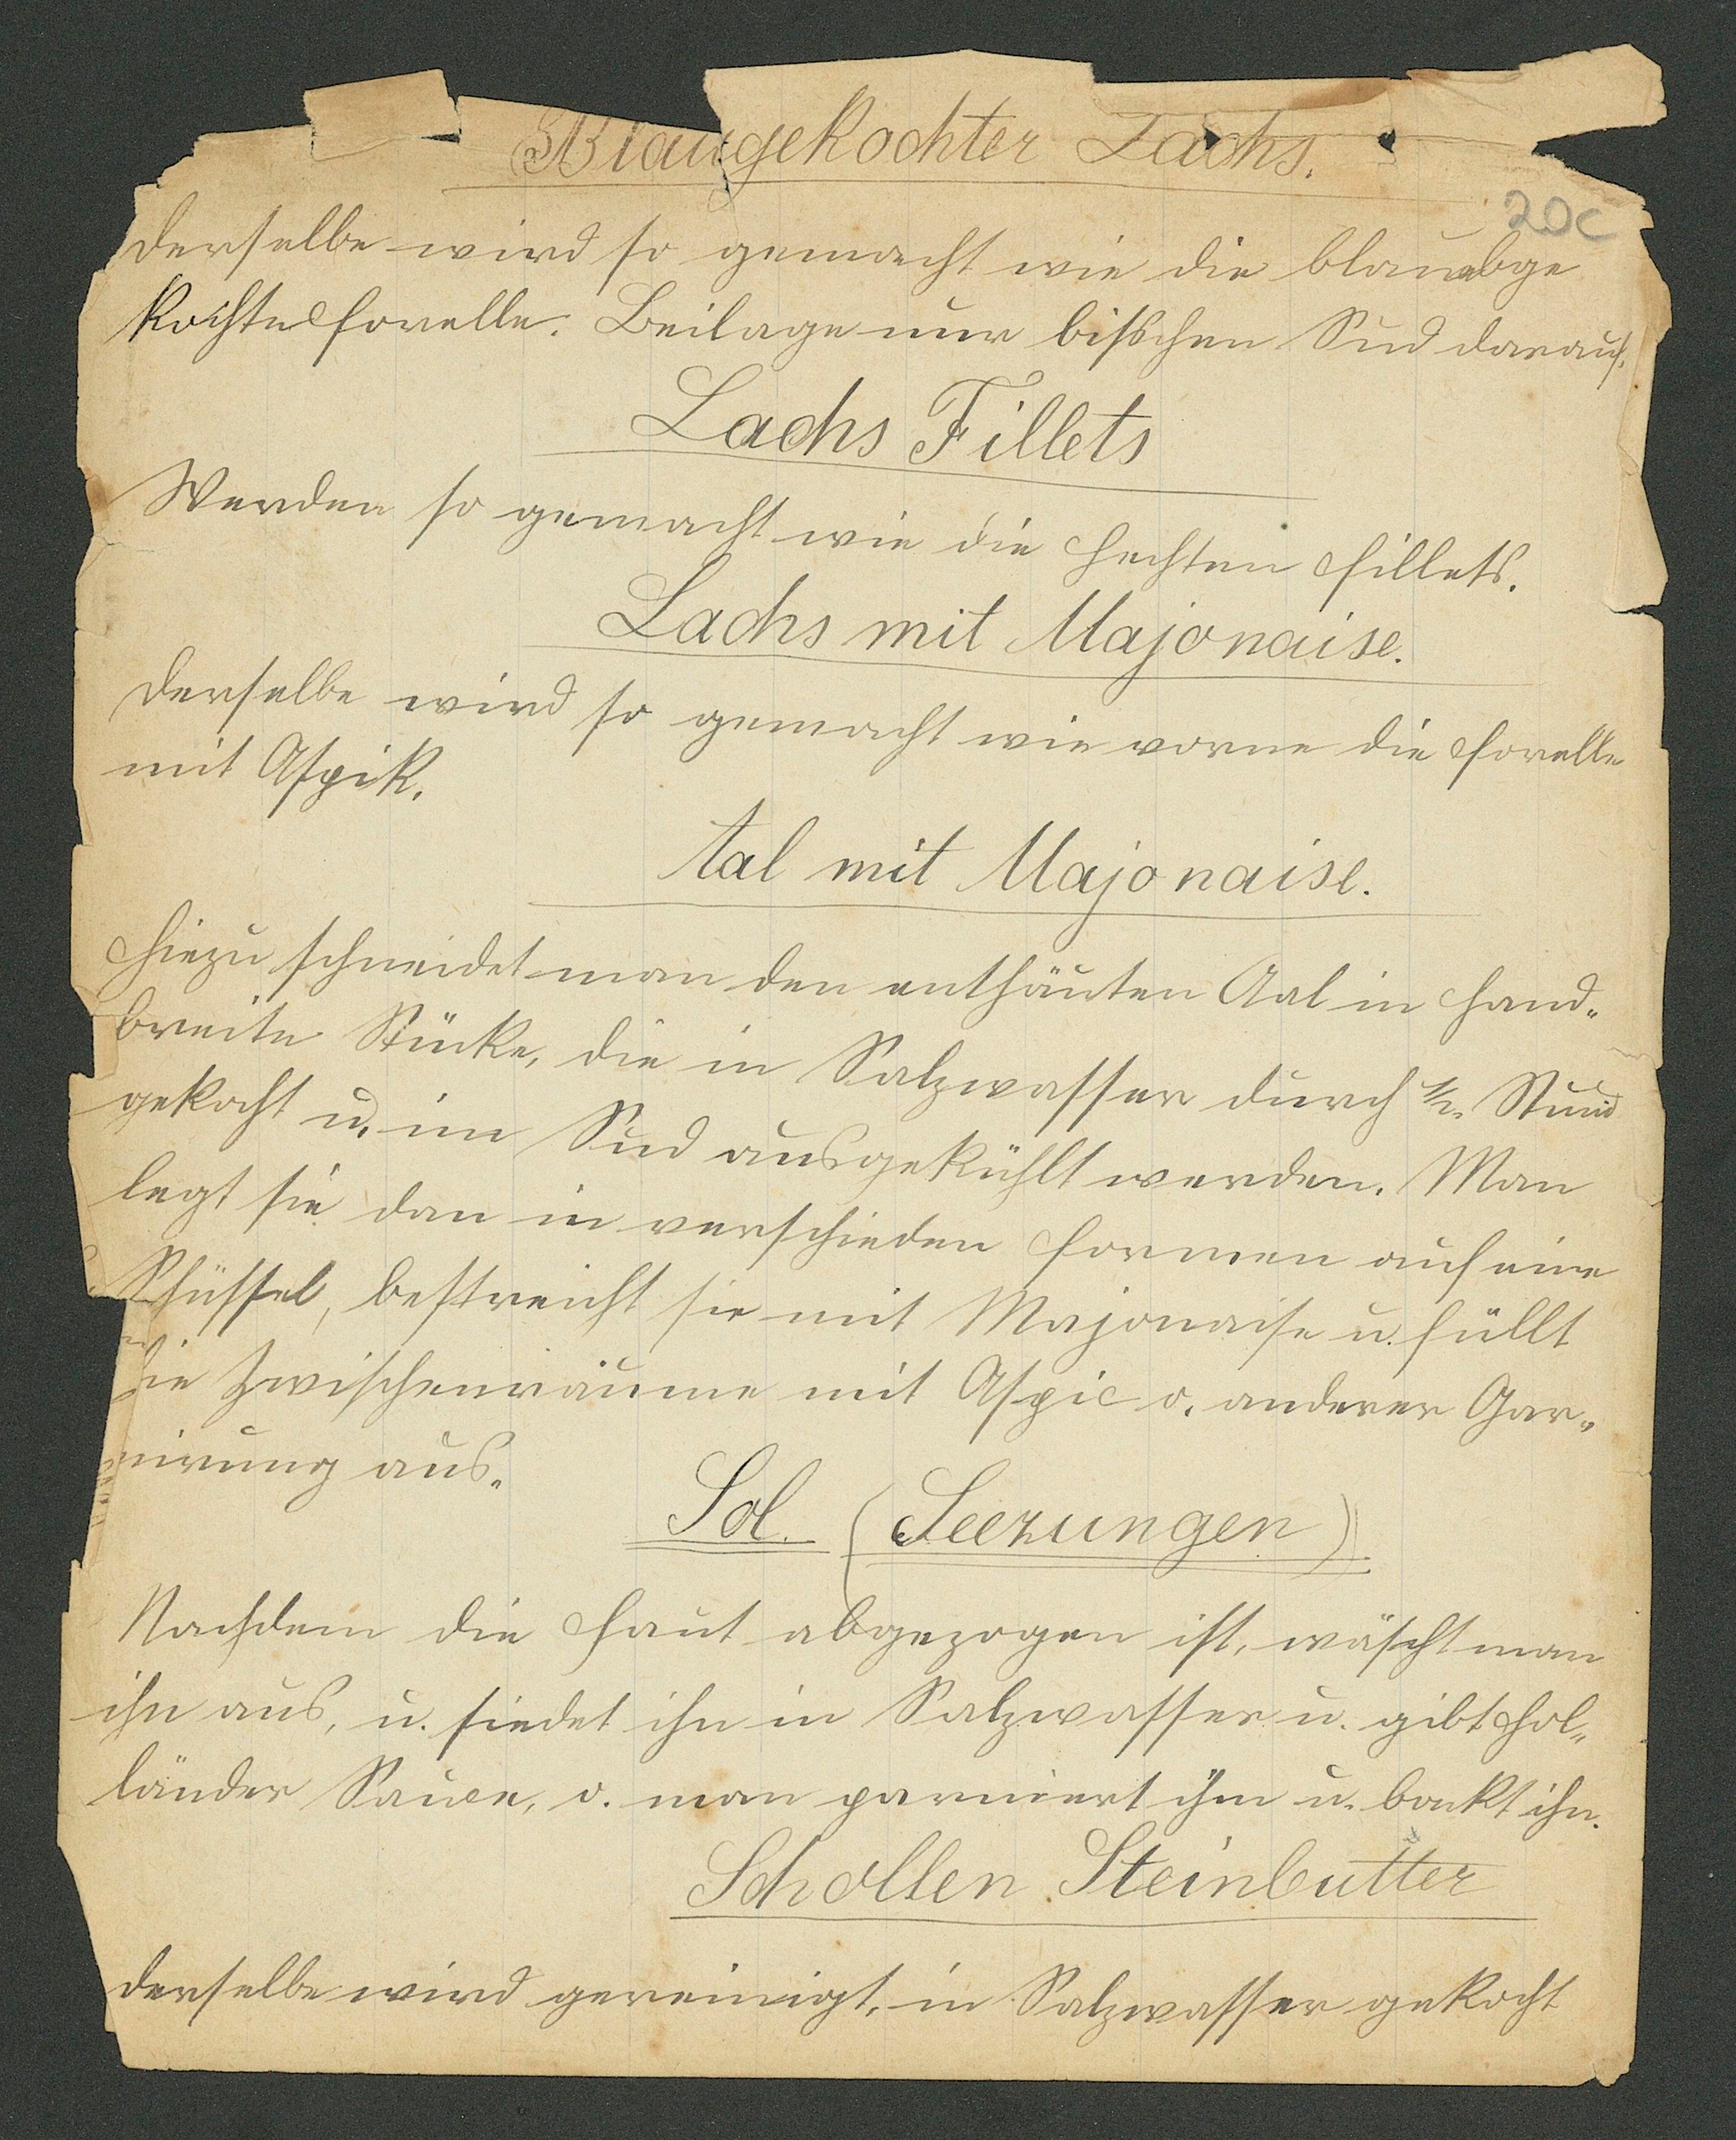 Blaugekochter Lachs.
20c
Derselbe wird so gemacht wie die blauabge
kochte Forelle. Beilage nur bisschen Sud darauf.
Lachs Fillets
Werden so gemacht wie die Hechten Fillets.
Lachs mit Majonaise.
Derselbe wird so gemacht wie vorne die Forelle
mit Aspik.
Aal mit Majonaise.
Hiezu schneidet man den enthäuten Aal in Hand„
breite Stücke, die in Salzwasser durch ½ Stund
gekocht u. im Sud ausgekühlt werden. Man
legt sie dan in verschieden Formen auf eine
Schüssel, bestreicht sie mit Majonaise u. füllt
die Zwischenräume mit Aspic o. anderer Gar„
nirung aus.
Sol. (Seezungen)
Nachdem die Haut abgezogen ist, wäscht man
ihn aus, u. siedet ihn in Salzwasser u. gibt Hol„
länder Sauce, o. man parniert ihn u. backt ihn.
Schollen Steinbutter
Derselbe wird gereinigt, in Salzwasser gekocht